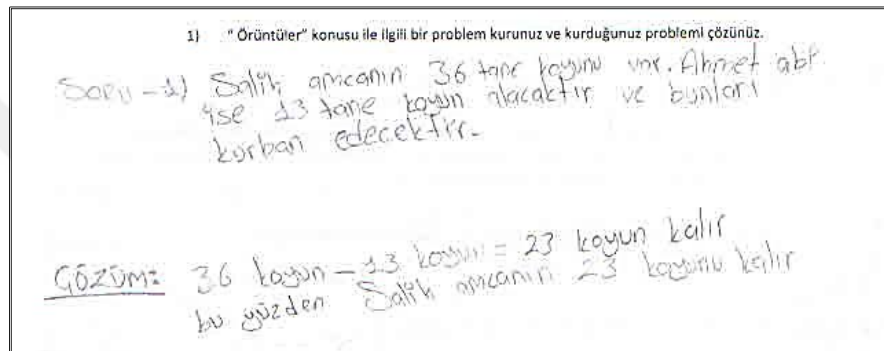 1) "Örüntüler" konusu ile ilgili bir problem kurunuz ve kurduğunuz problemi çözünüz.
Soru-1) Salih amcanın 36 tane koyunu var. Ahmet abi
ise 13 tane koyun alacaktır ve bunları
kurban edecektir.
ÇÖZÜM: 36 koyun - 13 koyun = 23 koyun kalır
bu yüzden Salih amcanın 23 koyunu kalır